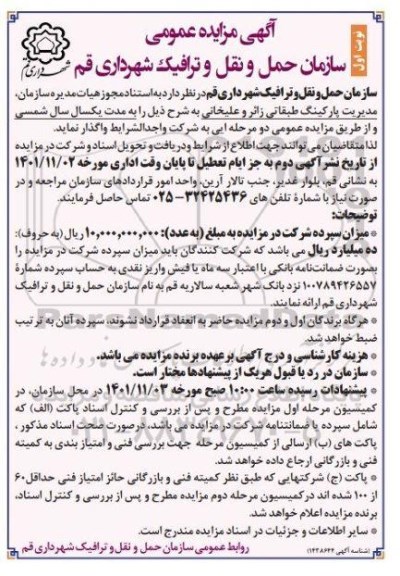 آگهی مزایده عمومی
سازمان حمل و نقل و ترافیک شهرداری قم
نوبت اول
شهرداری قم
سازمان حمل و نقل و ترافیک شهرداری قم در نظر دارد به استناد مجوز هیات مدیره سازمان،
مدیریت پارکینگ طبقاتی زائر و علیخانی به شرح ذیل را به مدت یکسال سال شمسی
و از طریق مزایده عمومی دو مرحله ایی به شرکت واجدالشرایط واگذار نماید.
لذا متقاضیان می توانند جهت اطلاع از شرایط و دریافت و تحویل اسناد و شرکت در مزایده
از تاریخ نشر آگهی دوم به جز ایام تعطیل تا پایان وقت اداری مورخه ۱۴۰۱/۱۱/۰۲
به نشانی قم، بلوار غدیر، جنب تالار آرین، واحد امور قراردادهای سازمان مراجعه و در
صورت نیاز با شمارۀ تلفن های ۳۲۴۲۵۴۳۶-۰۲۵ تماس حاصل فرمایند.
توضیحات:
* میزان سپرده شرکت در مزایده به مبلغ (به عدد): ۱۰,۰۰۰,۰۰۰,۰۰۰ ریال (به حروف):
ده میلیارد ریال می باشد که شرکت کنندگان باید میزان سپرده شرکت در مزایده را
بصورت ضمانتنامه بانکی با اعتبار سه ماه یا فیش واریز نقدی به حساب سپرده شمارۀ
۱۰۰۷۸۹۴۲۶۵۵۷ نزد بانک شهر شعبه سالاریه قم به نام سازمان حمل و نقل و ترافیک
شهرداری قم ارائه نمایند.
* هرگاه برندگان اول و دوم مزایده حاضر به انعقاد قرارداد نشوند، سپرده آنان به ترتیب
ضبط خواهد شد.
* هزینه کارشناسی و درج آگهی بر عهده برنده مزایده می باشد.
* سازمان در رد یا قبول هریک از پیشنهادها مختار است.
* پیشنهادات رسیده ساعت ۱۰:۰۰ صبح مورخه ۱۴۰۱/۱۱/۰۳ در محل سازمان، در
کمیسیون مرحله اول مزایده مطرح و پس از بررسی و کنترل اسناد پاکت (الف) که
شامل سپرده یا ضمانتنامه شرکت در مزایده می باشد، در صورت صحت اسناد مذکور،
پاکت های (ب) ارسالی از کمیسیون مرحله جهت بررسی فنی و امتیاز بندی به کمیته
فنی و بازرگانی ارجاع داده خواهد شد.
* پاکت (ج) شرکتهایی که طبق نظر کمیته فنی و بازرگانی حائز امتیاز فنی حداقل ۶۰
از ۱۰۰ شده اند در کمیسیون مرحله دوم مزایده مطرح و پس از بررسی و کنترل اسناد،
برنده مزایده اعلام خواهد شد.
* سایر اطلاعات و جزئیات در اسناد مزایده مندرج است.
روابط عمومی سازمان حمل و نقل و ترافیک شهرداری قم
(شناسه آگهی ۱۴۳۸۶۴۴)